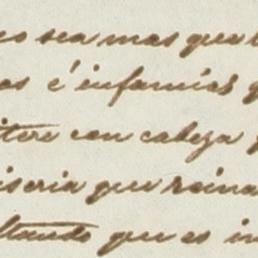 no sea mas que
as é infamias
itere con cabeza
iseria que reina
ltando que es in